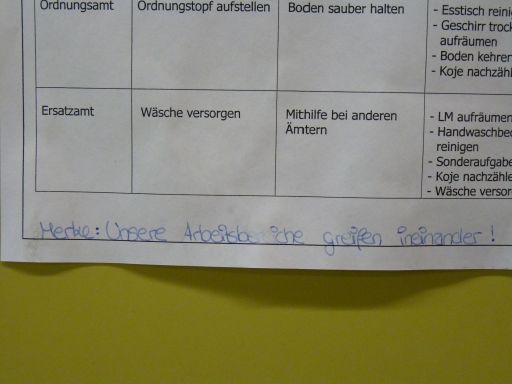 Ordnungsamt
Ordnungstopf aufstellen
Boden sauber halten
- Esstisch reini
- Geschirr trock
aufräumen
- Boden kehren
- Koje nachzähl
Ersatzamt
Wäsche versorgen
Mithilfe bei anderen
Ämtern
- LM aufräumen
- Handwaschbec
reinigen
- Sonderaufgabe
- Koje nachzähle
- Wäsche versor
Merke: Unsere Arbeitsbereiche greifen ineinander!